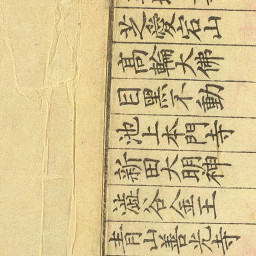 芝愛宕山
高輪大佛
目黑不動
池上本門寺
新田大明神
澁谷金王
青山善光寺